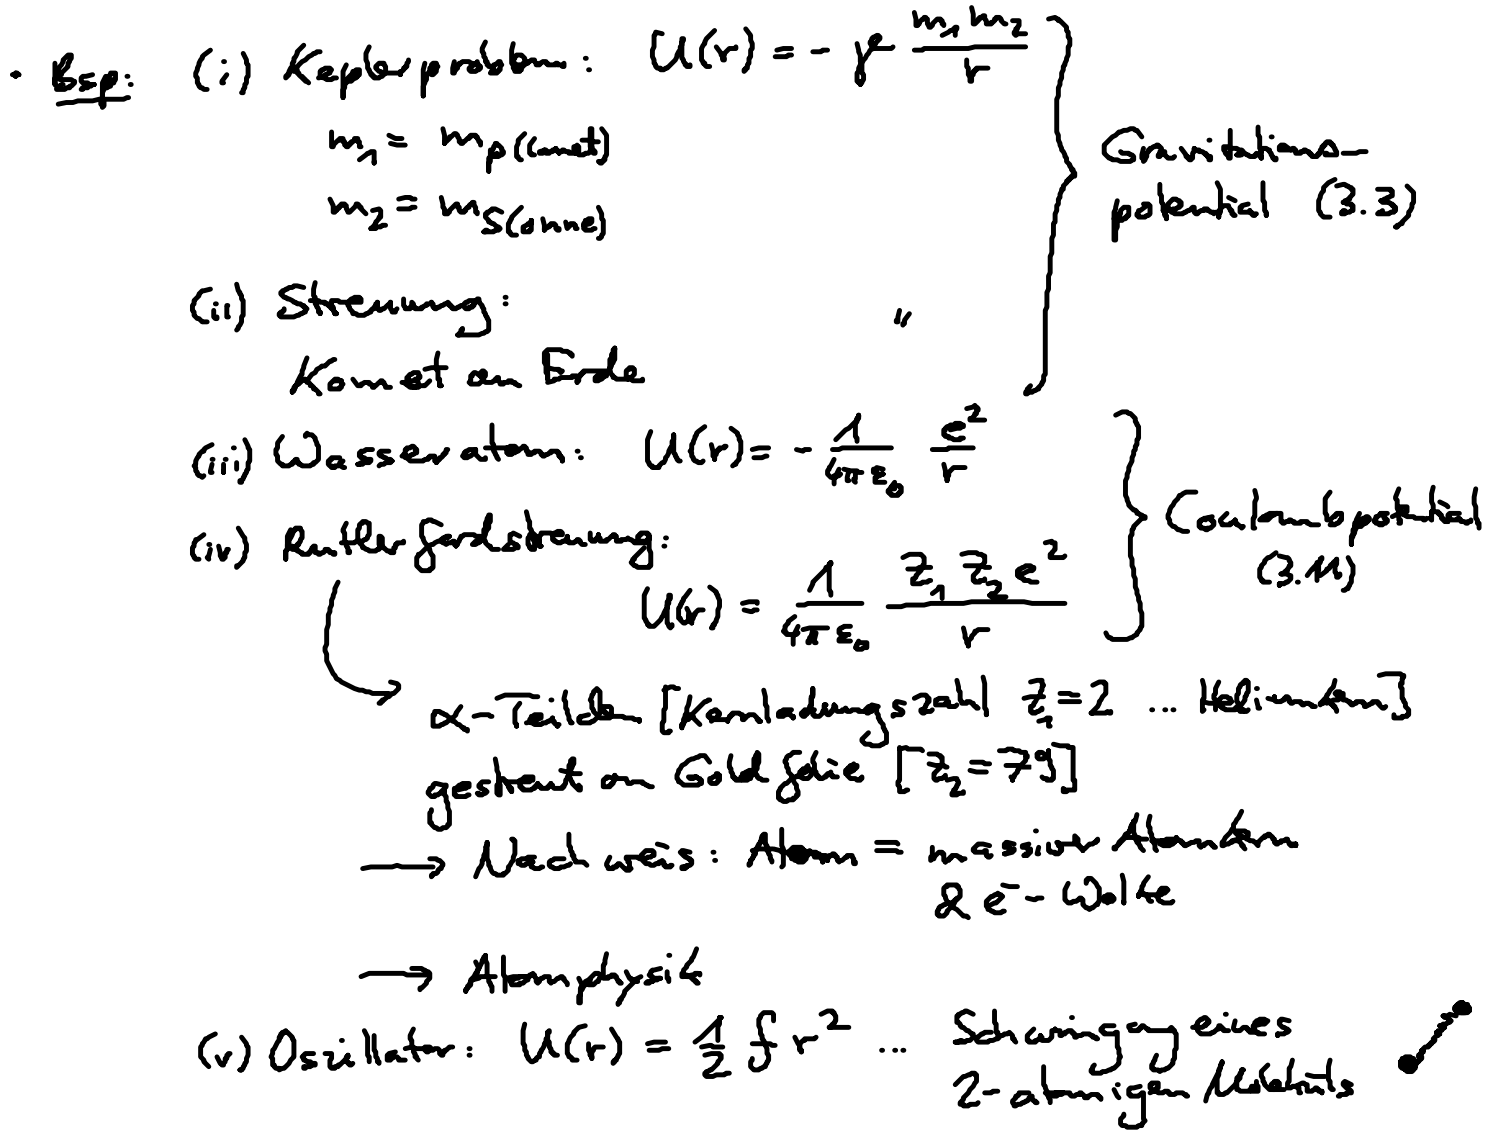 · Bsp: (i) Keplerproblem: U(r) = - γ m₁ m₂ / r
m₁ = m_P(lanet)
m₂ = m_S(onne)
Gravitations-
potential (3.3)
(ii) Streuung: "
Komet an Erde
(iii) Wasseratom: U(r) = - 1/(4πε₀) e²/r
(iv) Rutherfordstreuung:
U(r) = 1/(4πε₀) Z₁ Z₂ e² / r
Coulombpotential
(3.11)
→ α-Teilchen [Kernladungszahl Z₁ = 2 ... Heliumkern]
gestreut an Goldfolie [Z₂ = 79]
→ Nachweis: Atom = massiver Atomkern
& e⁻-Wolke
→ Atomphysik
(v) Oszillator: U(r) = 1/2 f r² ... Schwingung eines
2-atomigen Moleküls